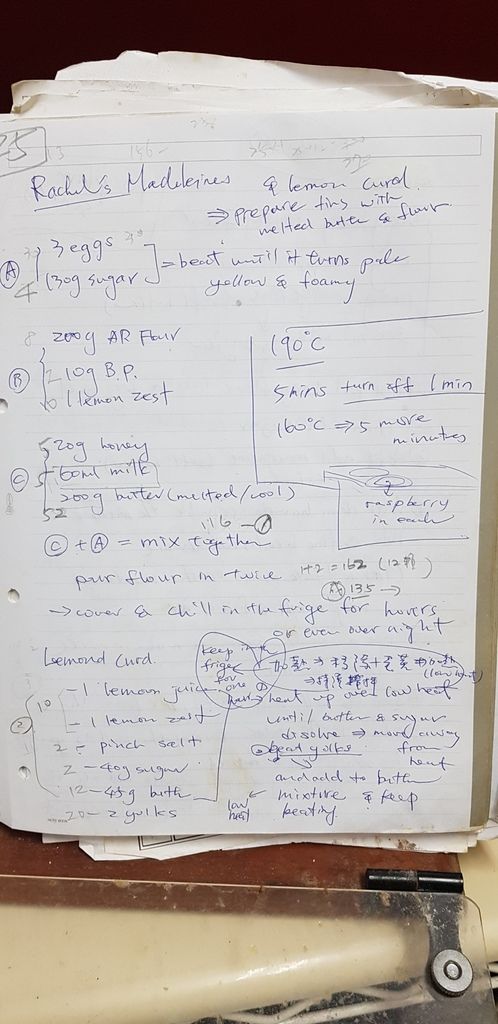 25
Rachel's Madeleines & lemon curd.
⇒ prepare tins with
melted butter & flour.
Ⓐ
3 eggs
130g sugar
= beat until it turns pale
yellow & foamy
Ⓑ
200g AP Flour
10g B.P.
1 lemon zest
190°C
5 mins turn off 1 min
160°C ⇒ 5 more
minutes
Ⓒ
20g honey
60ml milk
200g butter (melted/cool)
raspberry
in each
116
Ⓒ + Ⓐ = mix together
pur flour in twice
1+2 = 162
135 →
→ cover & chill in the frige for hovers
or even over night
Lemond Curd.
Keep in the
frige
for
one
hour
加熱 ⇒
- 1 lemon juice
→ heat up over low heat
- 1 lemon zest
until butter & sugar
2 - pinch salt
disolve ⇒ move away
from
heat
2 - 40g sugar
beat yolks
and add to butter
12 - 45g butter
low
heat
mixture & keep
beating.
20 - 2 yolks